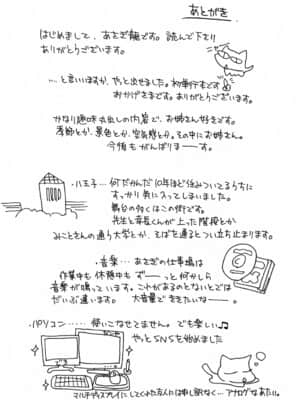 あとがき
はじめまして、あさぎ龍です。読んで下さり
ありがとうございます。
…と言いいますか、やっと出せました。初単行本です
おかげさまです。ありがとうございます。
かなり趣味丸出しの内容で、お姉さん好きです。
季節とか、景色とか、空気感とか。その中にお姉さん。
今後もがんばりまーーす。
・八王子…何だかんだ10年ほど住みついてるうちに
すっかり気に入ってしまいました。
舞台の多くはこの街です。
先生と委員長が上った階段とか
みことさんの通う大学とか、そばを通るとつい立ち止まります。
・音楽…あさぎの仕事場は
作業中も休憩中もずーーっと何かしら
音楽が鳴っています。これがあるのとないとでは
だいぶ違います。大音量できききたいなーー。
・パソコン……使いこなせてません。でも楽しい♫
やっとSNSを始めました
マルチディスプレイにしてくれた友人には申し訳なく…アナログなあたい。